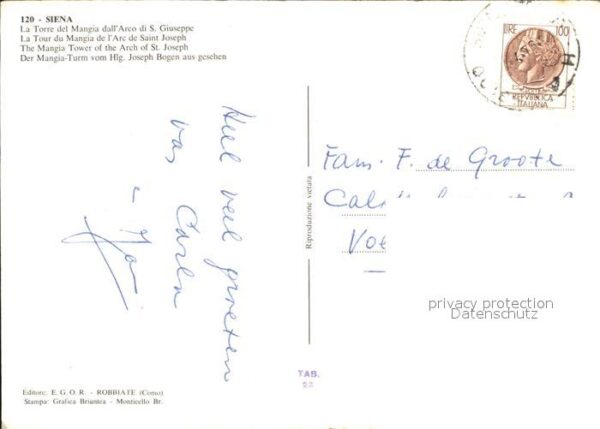 120 - SIENA
La Torre del Mangia dall'Arco di S. Giuseppe
La Tour du Mangia de l'Arc de Saint Joseph
The Mangia Tower of the Arch of St. Joseph
Der Mangia-Turm vom Hlg. Joseph Bogen aus gesehen
LIRE 100
REPVBBLICA
ITALIANA
Heel veel groeten
van Carla
Fam. F. de Groote
Riproduzione vietata
privacy protection
Datenschutz
TAB.
Editore: E. G. O. R. - ROBBIATE (Como)
Stampa: Grafica Briantea - Monticello Br.